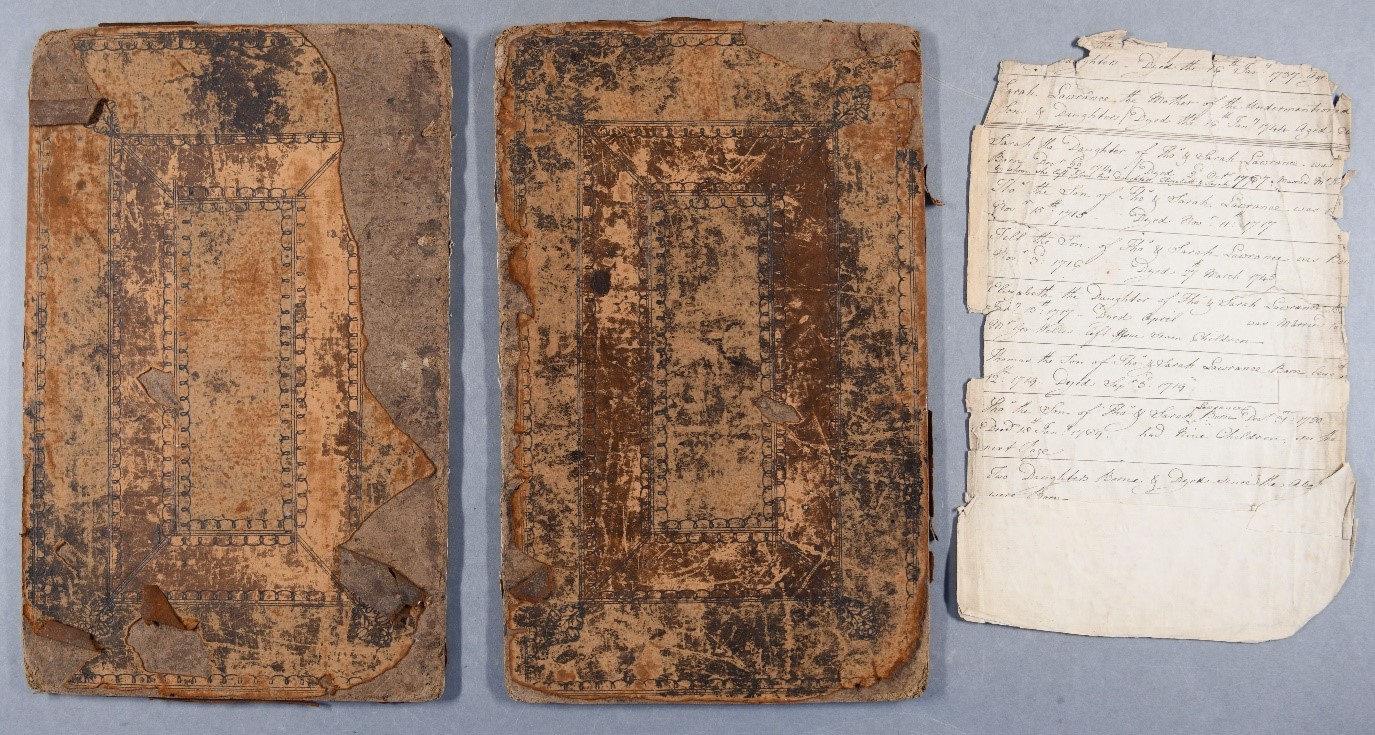 Daughters Dyed the 14th Jany 1737 Age
Sarah Lawrance the Mother of the Undermentioned
Sons & Daughters Dyed the 14th Jany 1744 Aged
Sarah the Daughter of Thos & Sarah Lawrance was
Born 1711 Dyed Octr 1757 Married Mr
to whom she left
Thos the Son of Thos & Sarah Lawrance was
Novr 15th 1715 Dyed Novr 11 1717
the Son of Thos & Sarah Lawrance was Born
Novr 5 1716 Dyed 27th March 1743
Elizabeth the Daughter of Thos & Sarah Lawrance
Jany 13th 1717 Dyed April was Marrie
Mr left Seven Children
Thomas the Son of Thos & Sarah Lawrance Born
12th 1719 Dyed Sepr 5 1719
Lawrance
Thos the Son of Thos & Sarah Borne Decr 1720
Dyed 15th Jany had Nine Children in the
next Page
Two Daughters Borne & Dyed since the Above
were Born